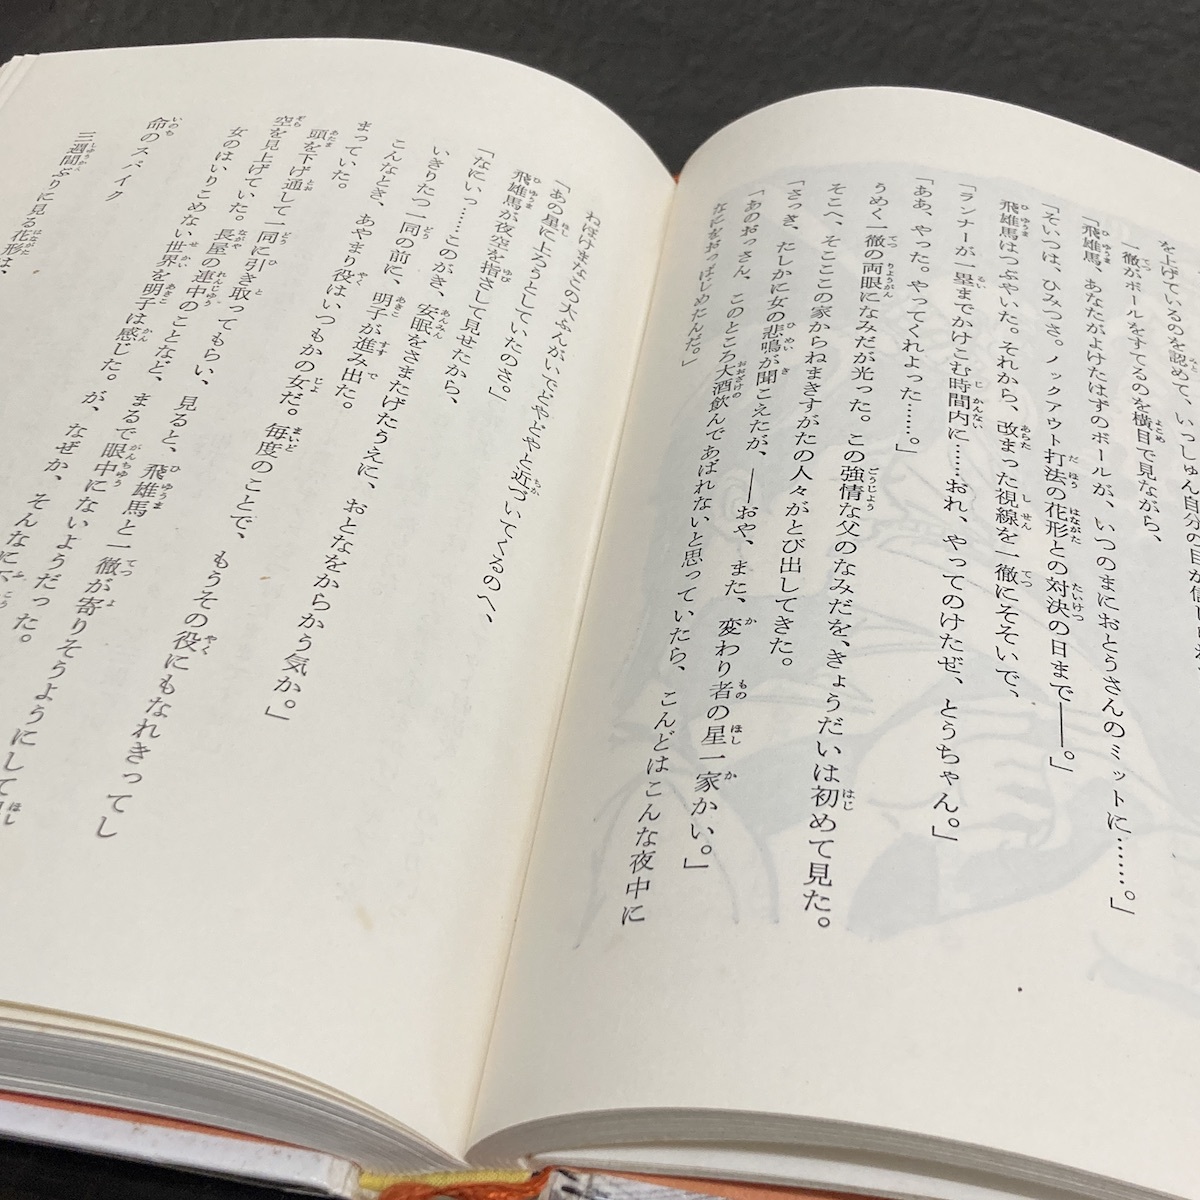 を上げているのを認めて、いっしゅん自分の目が信じられ
一徹がボールをすてるのを横目で見ながら、
「飛雄馬、あなたがよけたはずのボールが、いつのまにおとうさんのミットに……。」
「そいつは、ひみつさ。ノックアウト打法の花形との対決の日まで――。」
飛雄馬はつぶやいた。それから、改まった視線を一徹にそそいで、
「ランナーが一塁までかけこむ時間内に……おれ、やってのけたぜ、とうちゃん。」
「ああ、やった。やってくれよった……。」
うめく一徹の両眼になみだが光った。この強情な父のなみだを、きょうだいは初めて見た。
そこへ、そここの家からねまきすがたの人々がとび出してきた。
「さっき、たしかに女の悲鳴が聞こえたが、――おや、また、変わり者の星一家かい。」
「あのおっさん、このところ大酒飲んであばれないと思っていたら、こんどはこんな夜中に
なにをおっぱじめたんだ。」
ねぼけまなこの大ぶんがいでとやどやと近づいてくるのへ、
「あの星に上ろうとしていたのさ。」
飛雄馬が夜空を指さして見せたから、
「なにい……このがき、安眠をさまたげたうえに、おとなをからかう気か。」
いきりたつ一同の前に、明子が進み出た。
こんなとき、あやまり役はいつもかの女だ。毎度のことで、もうその役にもなれきってし
まっていた。
頭を下げ通して一同に引き取ってもらい、見ると、飛雄馬と一徹が寄りそうようにして星
空を見上げていた。長屋の連中のことなど、まるで眼中にないようだった。
女のはいりこめない世界を明子は感じた。が、なぜか、そんなに
命のスパイク
三週間ぶりに見る花形は、